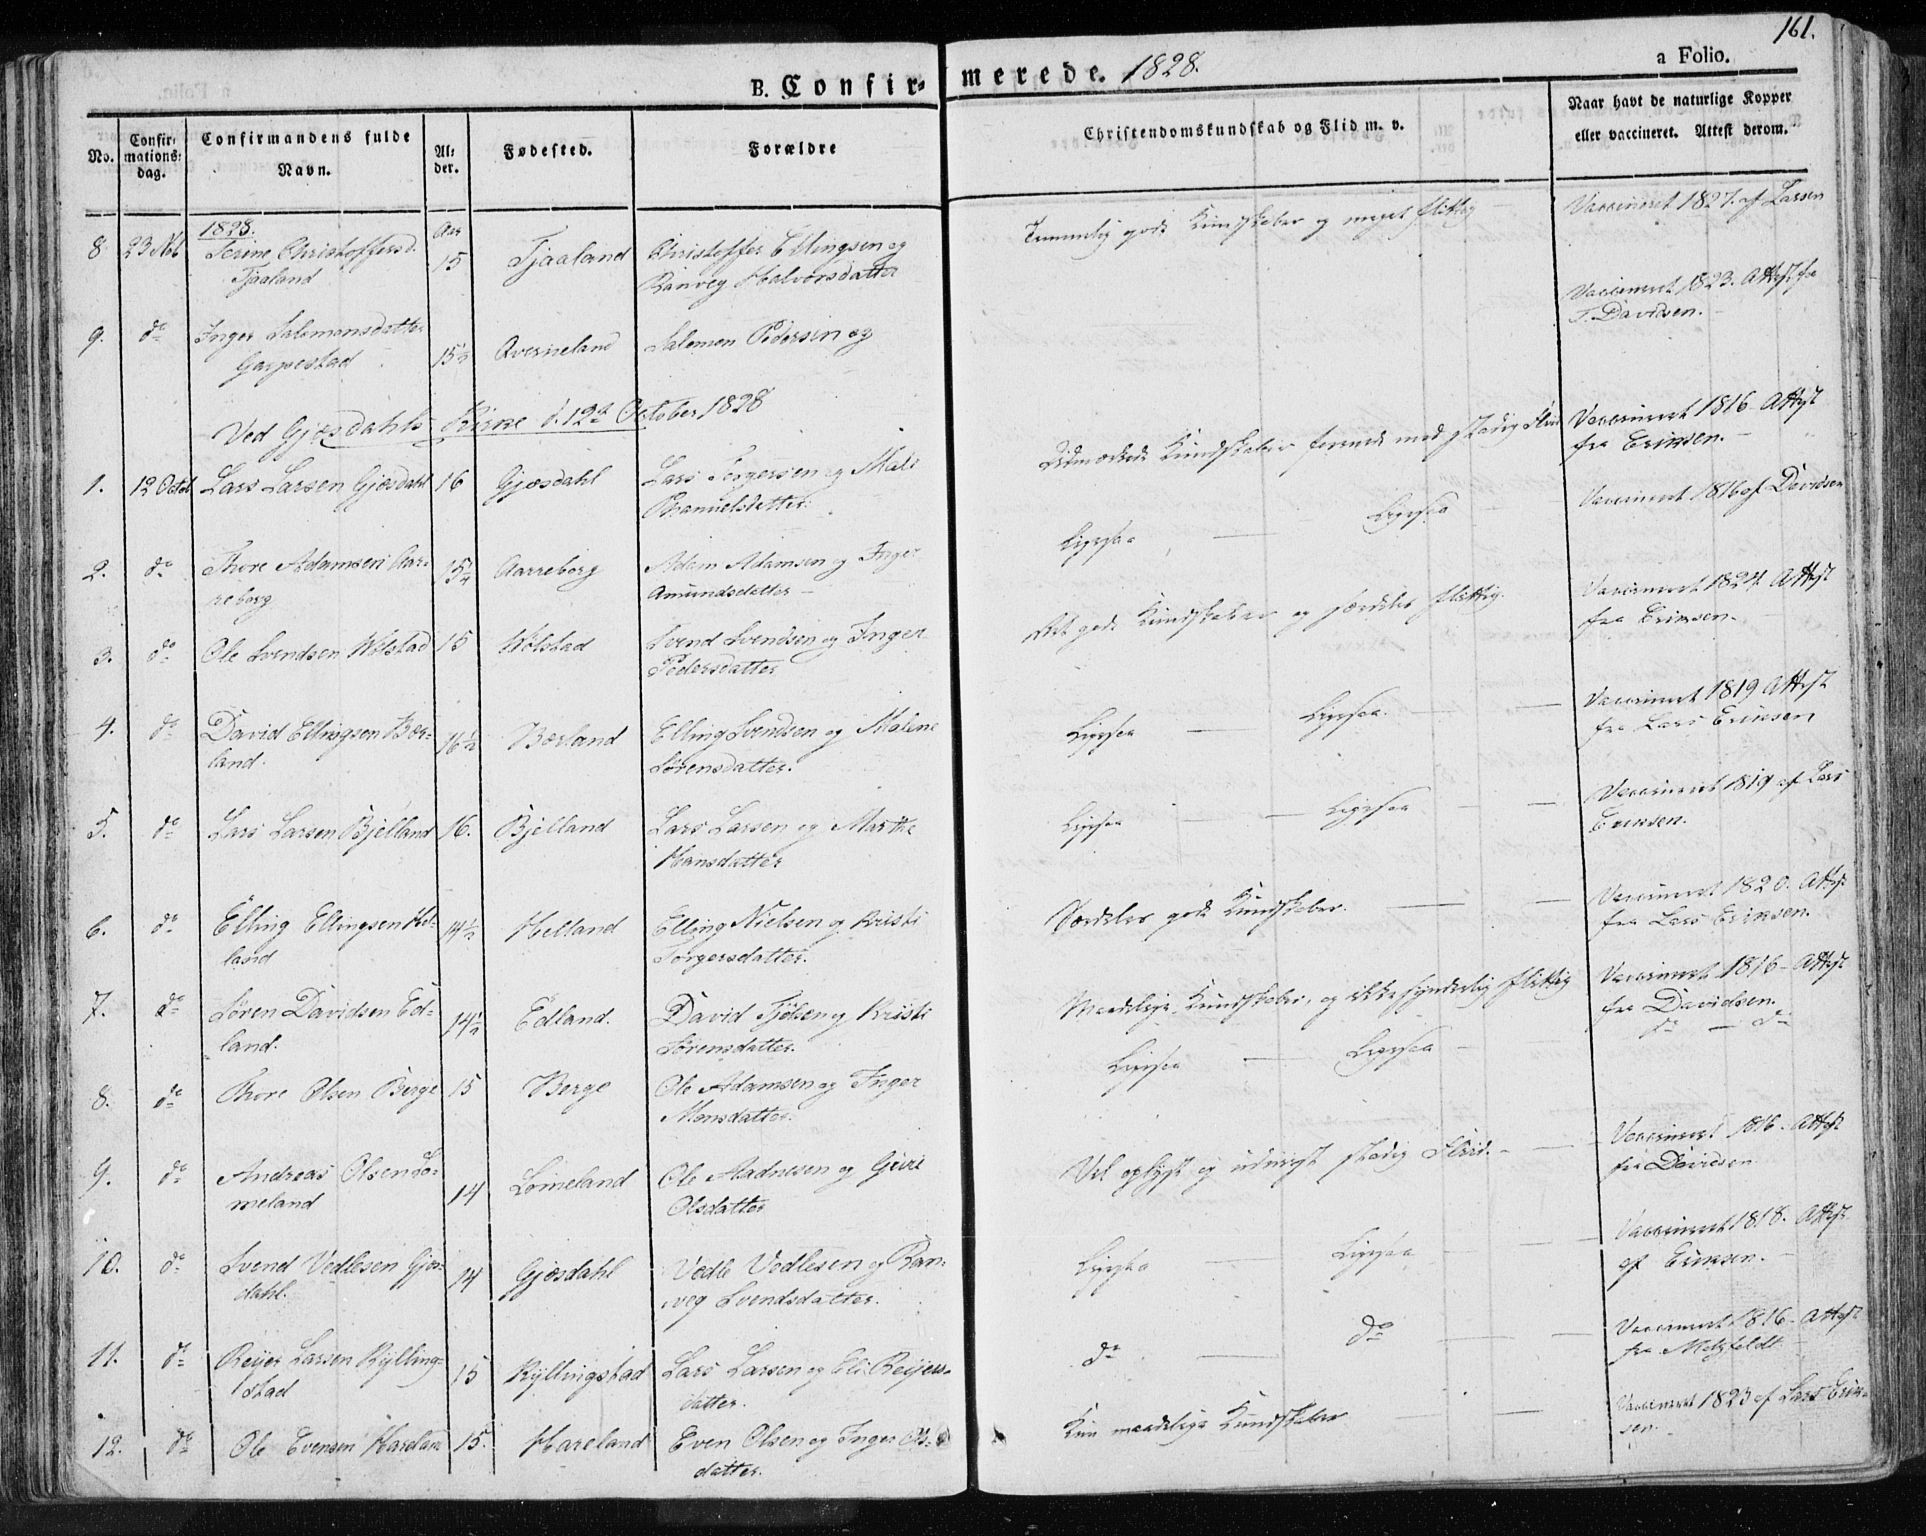 161.
B. Confir- merede. 1828. a Folio.
No.
Confir-
mations-
dag.
Confirmandens fulde
Navn.
Al-
der.
Fødested.
Forældre
Christendomskundskab og Flid m. v.
Naar havt de naturlige Kopper
eller vaccineret. Attest derom.
1828. Aar
8 23 Serine Christoffersd. 15 Tjaaland Christoffer Ellingsen og Temmelig gode Kundskaber og meget flittig Vaccineret 1827. af Larsen
Tjaaland Ranveg Halvorsdatter
9. do Inger Salomonsdatter 15½ Qverneland Salomon Pedersen og Vaccineret 1823. Attest fra
Garpestad T. Davidsen.
Ved Gjæsdahls Kirke d. 12te October 1828
1. 12 Octob Lars Larsen Gjæsdahl 16 Gjæsdahl Lars Torgersen og Mali Udmærkede Kundskaber forened med stadig Flid Vaccineret 1816 Attest
datter. fra Eriksen.
2. do Thore Adamsen Aar- 15¼ Aarreborg Adam Adamsen og Inger Ligesaa Ligesaa Vaccineret 1816 af Davidsen
reborg Amundsdatter
3. do Ole Svendsen Wølstad 15 Wølstad Svend Svendsen og Inger Ret gode Kundskaber og særdeles flittig. Vaccineret 1824. Attest
Pedersdatter fra Eriksen.
4. do David Ellingsen Bær- 16½ Bærland Elling Svendsen og Malene Ligesaa Ligesaa. Vaccineret 1819 Attest
land. Sørensdatter. fra Lars Eriksen
5. do Lars Larsen Bjelland 16. Bjelland Lars Larsen og Marthe Ligesaa Ligesaa Vaccineret 1819 af Lars
Hansdatter Eriksen.
6. do Elling Ellingsen Hel- 14½ Helland Elling Nielsen og Kristi Særdeles gode Kundskaber. Vaccineret 1820. Attest
land Torgersdatter. fra Lars Eriksen.
7. do Søren Davidsen Ed- 14½ Edland. David og Kristi Maadelige Kundskaber, og ikke synderlig flittig Vaccineret 1816 Attest
land. Sørensdatter. fra Davidsen.
8. do Thore Olsen Berge 15 Berge Ole Adamsen og Inger Ligesaa Ligesaa do do
Monsdatter.
9. do Andreas Olsen Lo- 14 Lomeland Ole Aadnesen og Vel oplyst og udvigt stadig Flid. Vaccineret 1816. Attest
meland Olsdatter fra Davidsen
10. do Svend Vedlesen Gjæs- 14 Gjæsdahl Vedle Vedlesen og Ran- Ligesaa Ligesaa Vaccineret 1818. Attest
dahl. veg Svendsdatter. af Eriksen.
11. do Reijer Larsen Rylling- 15 Ryllingstad Lars Larsen og Eli Reijers- do do Vaccineret 1816 Attest
stad datter. fra Metzfeldt
12. do Ole Evensen Hareland 15. Hareland Even Olsen og Inger Ols- Kun maadelige Kundskaber Vaccineret 1823 af Lars Erik-
datter. sen.